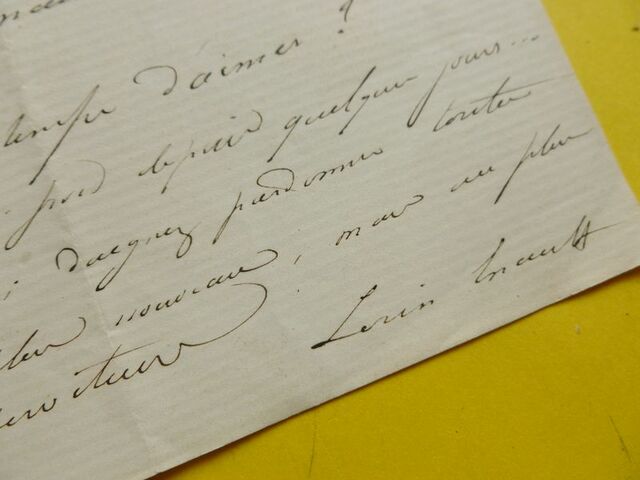 d'aimer ?
froid depuis quelques jours...
; daignez pardonner toutes
nouveau, mais au plus
serviteur
Louis Enault